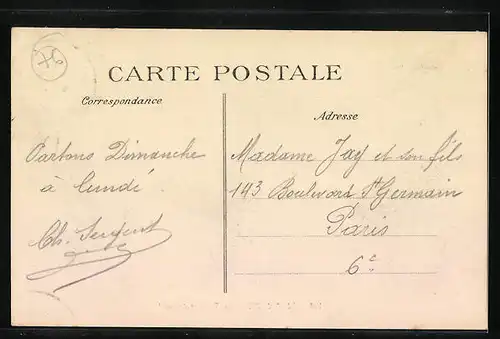 CARTE POSTALE
Correspondance
Adresse
Partons Dimanche
à
Ch. Sergent
Madame Jay et son fils
143 Boulevard St Germain
Paris
6e